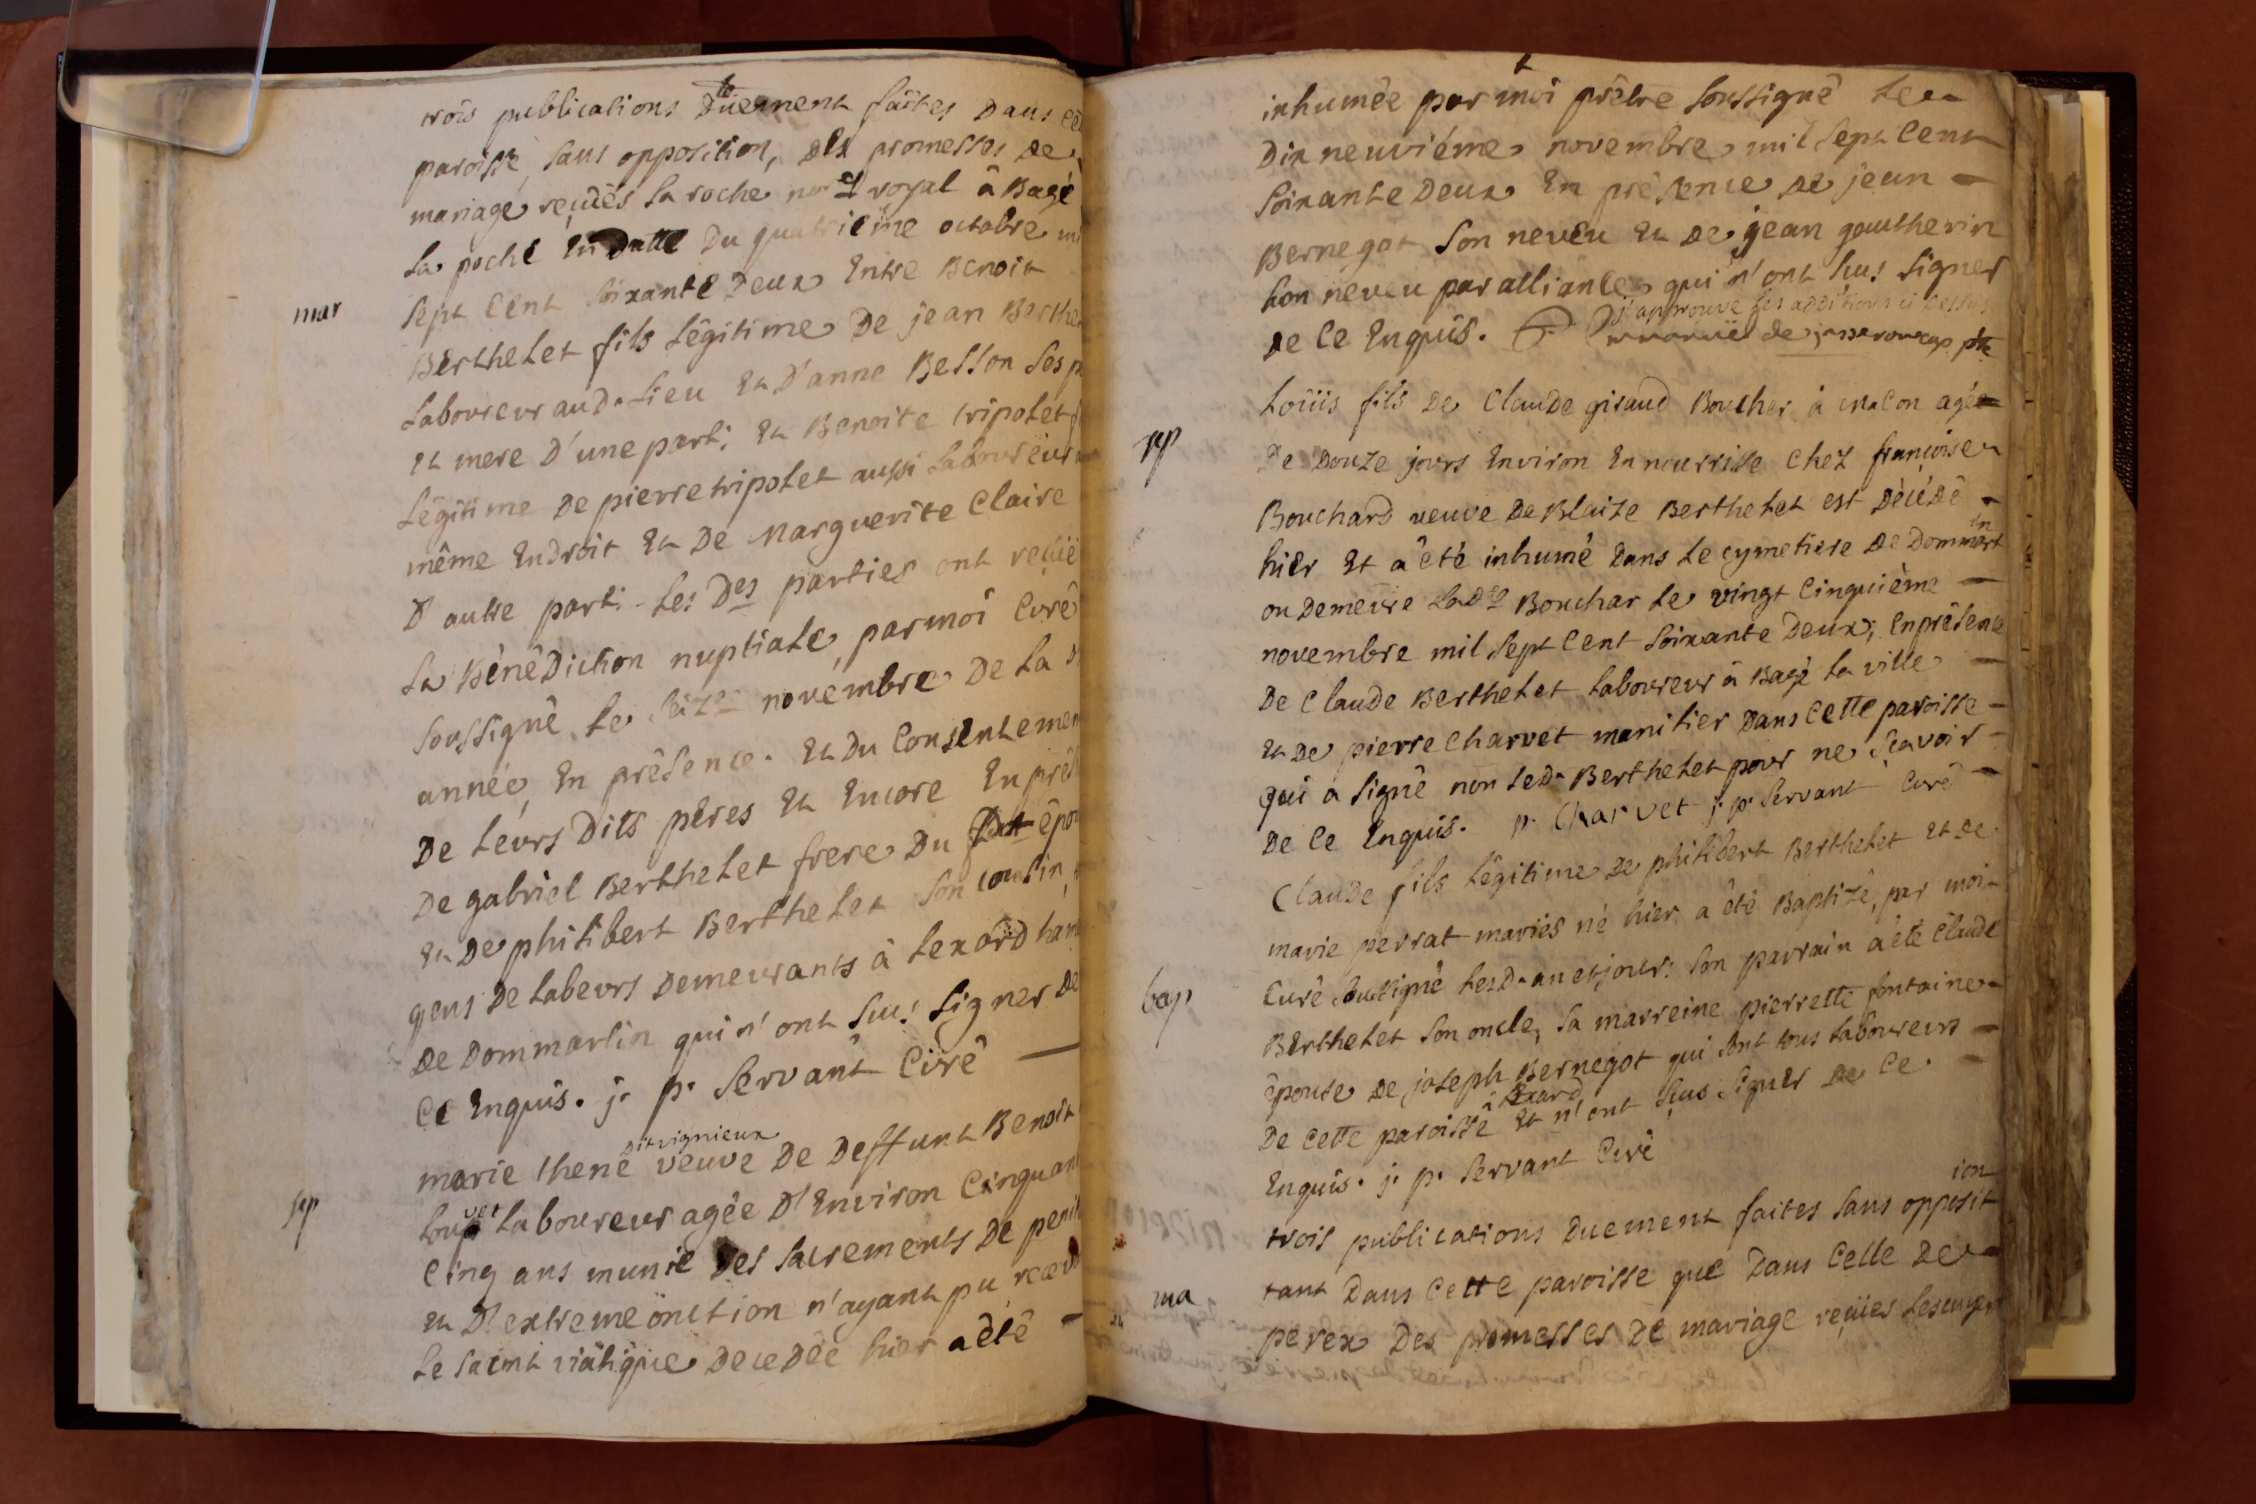 trois publications Düement faites Dans cet
paroisse sans opposition, des promesses de
mariage reçuës La roche nore royal â Bagé
La poche En Datte Du quatriéme octobre mi
mar
Sept Cent Soixante Deux Entre Benoit
Berthelet fils Légitime De jean Berthe
Laboureur aud. Lieu Et D'anne Besson Ses p
Et mere D'une part; Et Benoite tripolet f
Légitime De pierre tripolet aussi Laboureur
même Endroit Et De Marguerite Claire
D'autre parti. Les Des parties ont reçuë
La Bénédiction nuptiale, par moi Curé
Soussigné Le seize novembre De La d
année, En présence. Et Du Consentemen
De Leurs Dits péres Et Encore En prés
De gabriel Berthelet frere Du Dit épou
Et De philibert Berthelet Son Cousin,
gens De Labeurs Demeurants à Lexard ham
De Dommartin qui n'ont Sçus Signer De
Ce Enquis. j. p. Servant Curé
Dit vignieux
marie thené veuve De Deffunt Benoit
sep
Louvet Laboureur agée D'Environ Cinquant
Cinq ans munie Des Sacrements De penit
Et D'extreme onction n'ayant pu recevo
Le Saint viatique Decedée hier a été
inhumée par moi prêtre Soussigné Le
Dix neuviéme novembre mil Sept Cent
Soixante Deux En présence De jean
Bernegot Son neveu Et De jean gautherin
Son neveu par alliance qui n'ont Sçus Signer
j'approuve les additions ci dessus
De Ce Enquis.
Loüis fils De Claude giraud Boucher à macon agé
sep
De Douze jours Environ En nourrisse Chez françoise
Bouchard veuve De Blaize Berthelet est Décédé
hier Et a été inhumé Dans Le cymetiere De Dommartin
ou Demeure Lade Bouchar Le vingt Cinquième
novembre mil Sept Cent Soixante Deux; En présence
De Claude Berthelet Laboureur â Bagé La ville
Et De pierre Charvet manilier Dans Cette paroisse
qui a Signé non Led. Berthelet pour ne Sçavoir
De Ce Enquis. p. Charvet j. p. Servant Curé
Claude fils Légitime De philibert Berthelet Et De
marie perrat mariés né hier a été Baptizé, par moi
bap
Curé Soussigné Lesd. an et jour: Son parrain a été Claude
Berthelet Son oncle, Sa marreine pierrette fontaine
épouse De joseph Bernegot qui Sont tous Laboureurs
à Lexard
De Cette paroisse Et n'ont Sçus Signer De Ce
Enquis. j. p. Servant Curé
trois publications Duement faites Sans opposition
ma
tant Dans Cette paroisse que Dans Celle De
perex Des promesses De mariage reçües